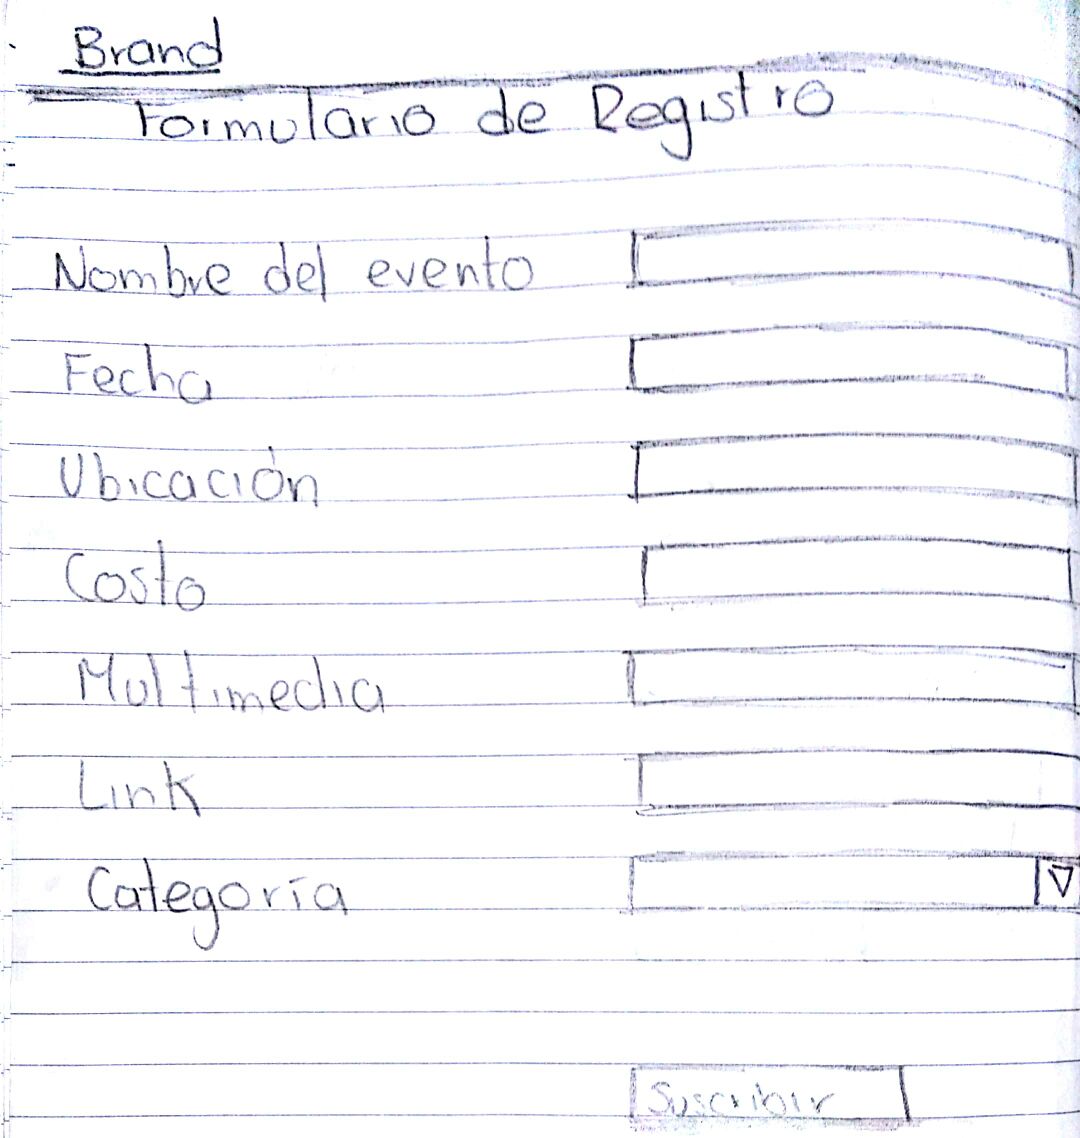 Brand
Formulario de Registro
Nombre del evento
Fecha
Ubicación
Costo
Multimedia
Link
Categoría
Suscribir